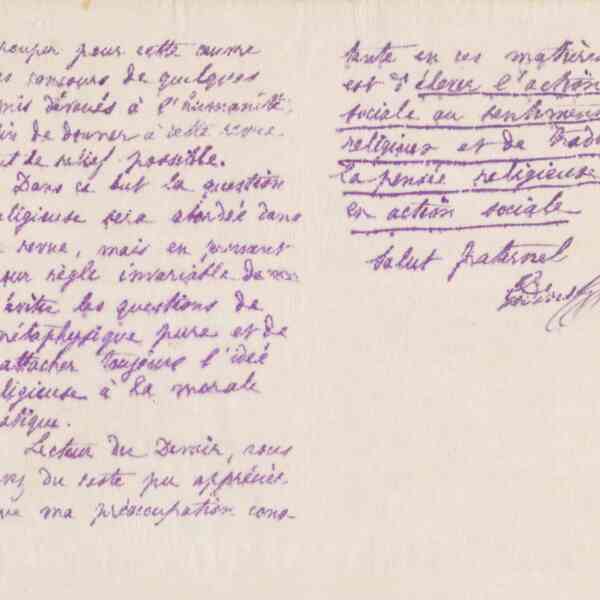 pour cette œuvre
concours de quelques
mis dévoués à l'humanité
de donner à cette revue
de relief possible.
Dans ce but la question
eligieuse sera abordée dans
revue, mais en prenant
our règle invariable de
éviter les questions de
métaphysique pure et de
attacher toujours l'idée
eligieuse à la morale
atique.
Lecteur du Devoir, vous
ez du reste pu apprécier
ue ma préoccupation cons-
tante en ces matières
est d'élever l'action
sociale au sentiment
religieux et de tradu
la pensée religieuse
en action sociale
Salut fraternel